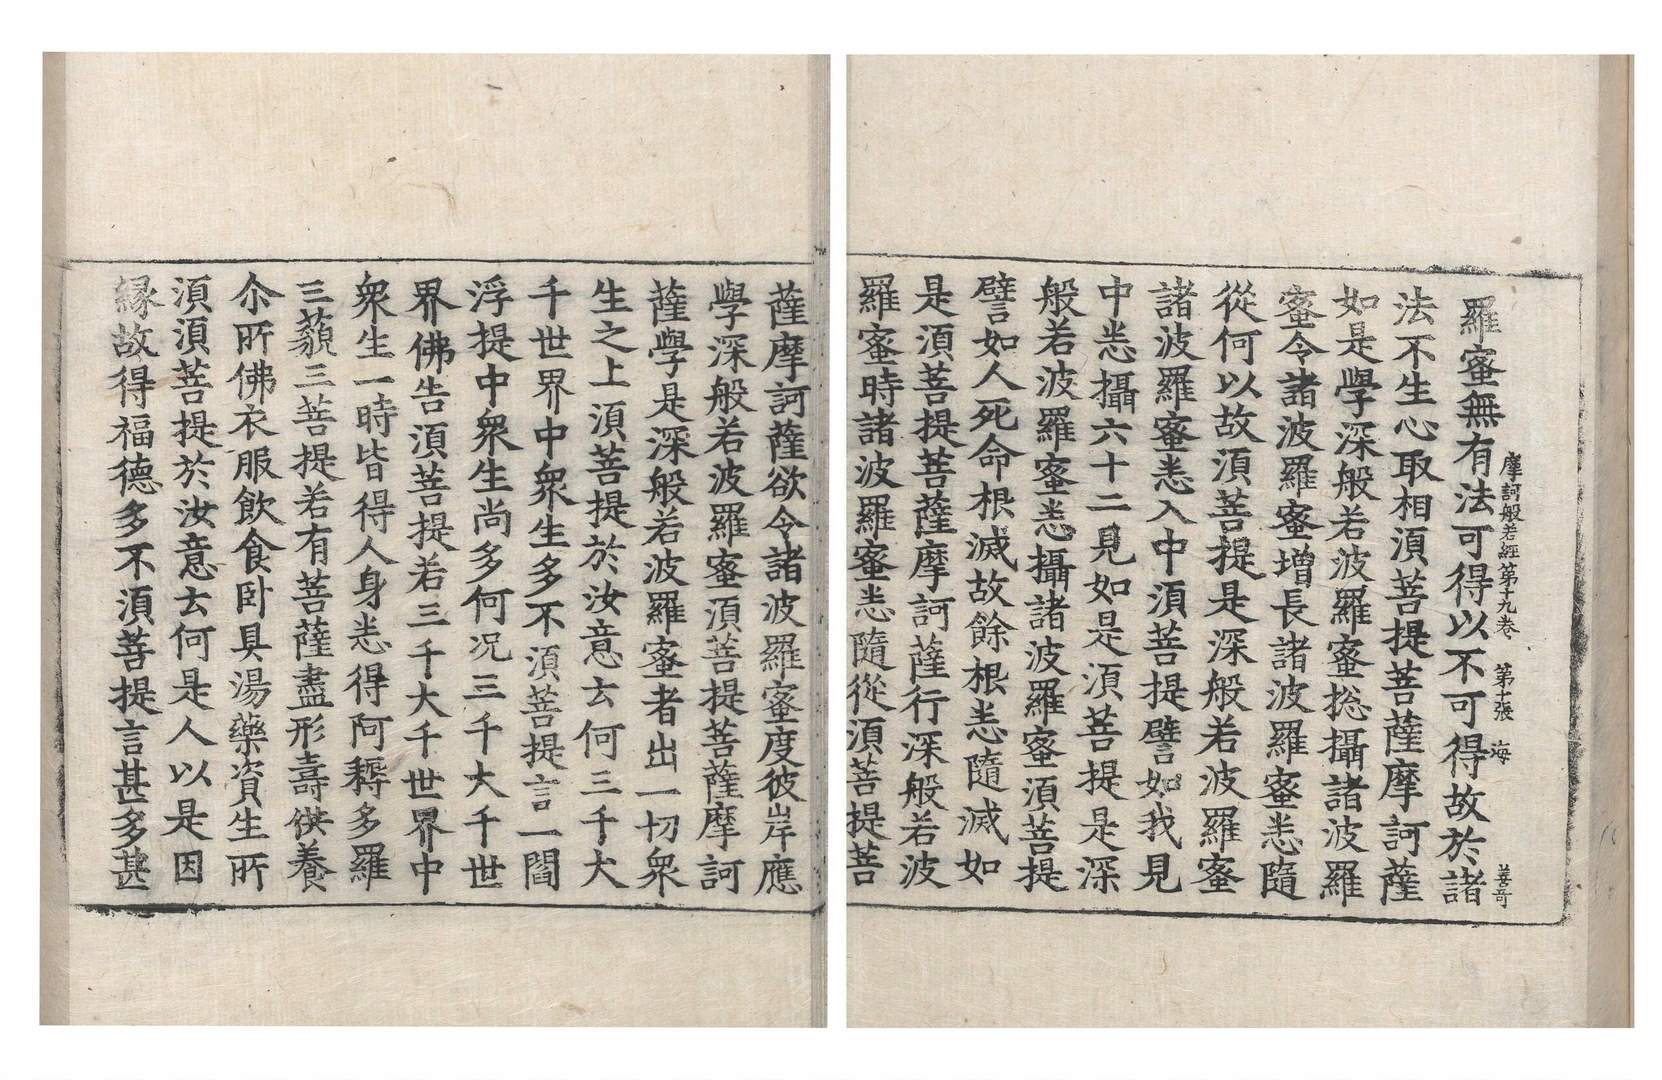 摩訶般若經第十九卷　第十張　海　善哥
羅蜜無有法可得以不可得故於諸
法不生心取相湏菩提菩薩摩訶薩
如是學深般若波羅蜜捴攝諸波羅
蜜令諸波羅蜜增長諸波羅蜜悉隨
從何以故湏菩提是深般若波羅蜜
諸波羅蜜悉入中湏菩提譬如我見
中悉攝六十二見如是湏菩提是深
般若波羅蜜悉攝諸波羅蜜湏菩提
譬如人死命根滅故餘根悉隨滅如
是湏菩提菩薩摩訶薩行深般若波
羅蜜時諸波羅蜜悉隨從湏菩提菩
薩摩訶薩欲令諸波羅蜜度彼岸應
學深般若波羅蜜湏菩提菩薩摩訶
薩學是深般若波羅蜜者出一切衆
生之上湏菩提於汝意云何三千大
千世界中衆生多不湏菩提言一閻
浮提中衆生尚多何況三千大千世
界佛告湏菩提若三千大千世界中
衆生一時皆得人身悉得阿耨多羅
三藐三菩提若有菩薩盡形壽供養
尒所佛衣服飲食卧具湯藥資生所
湏湏菩提於汝意云何是人以是因
緣故得福德多不湏菩提言甚多甚